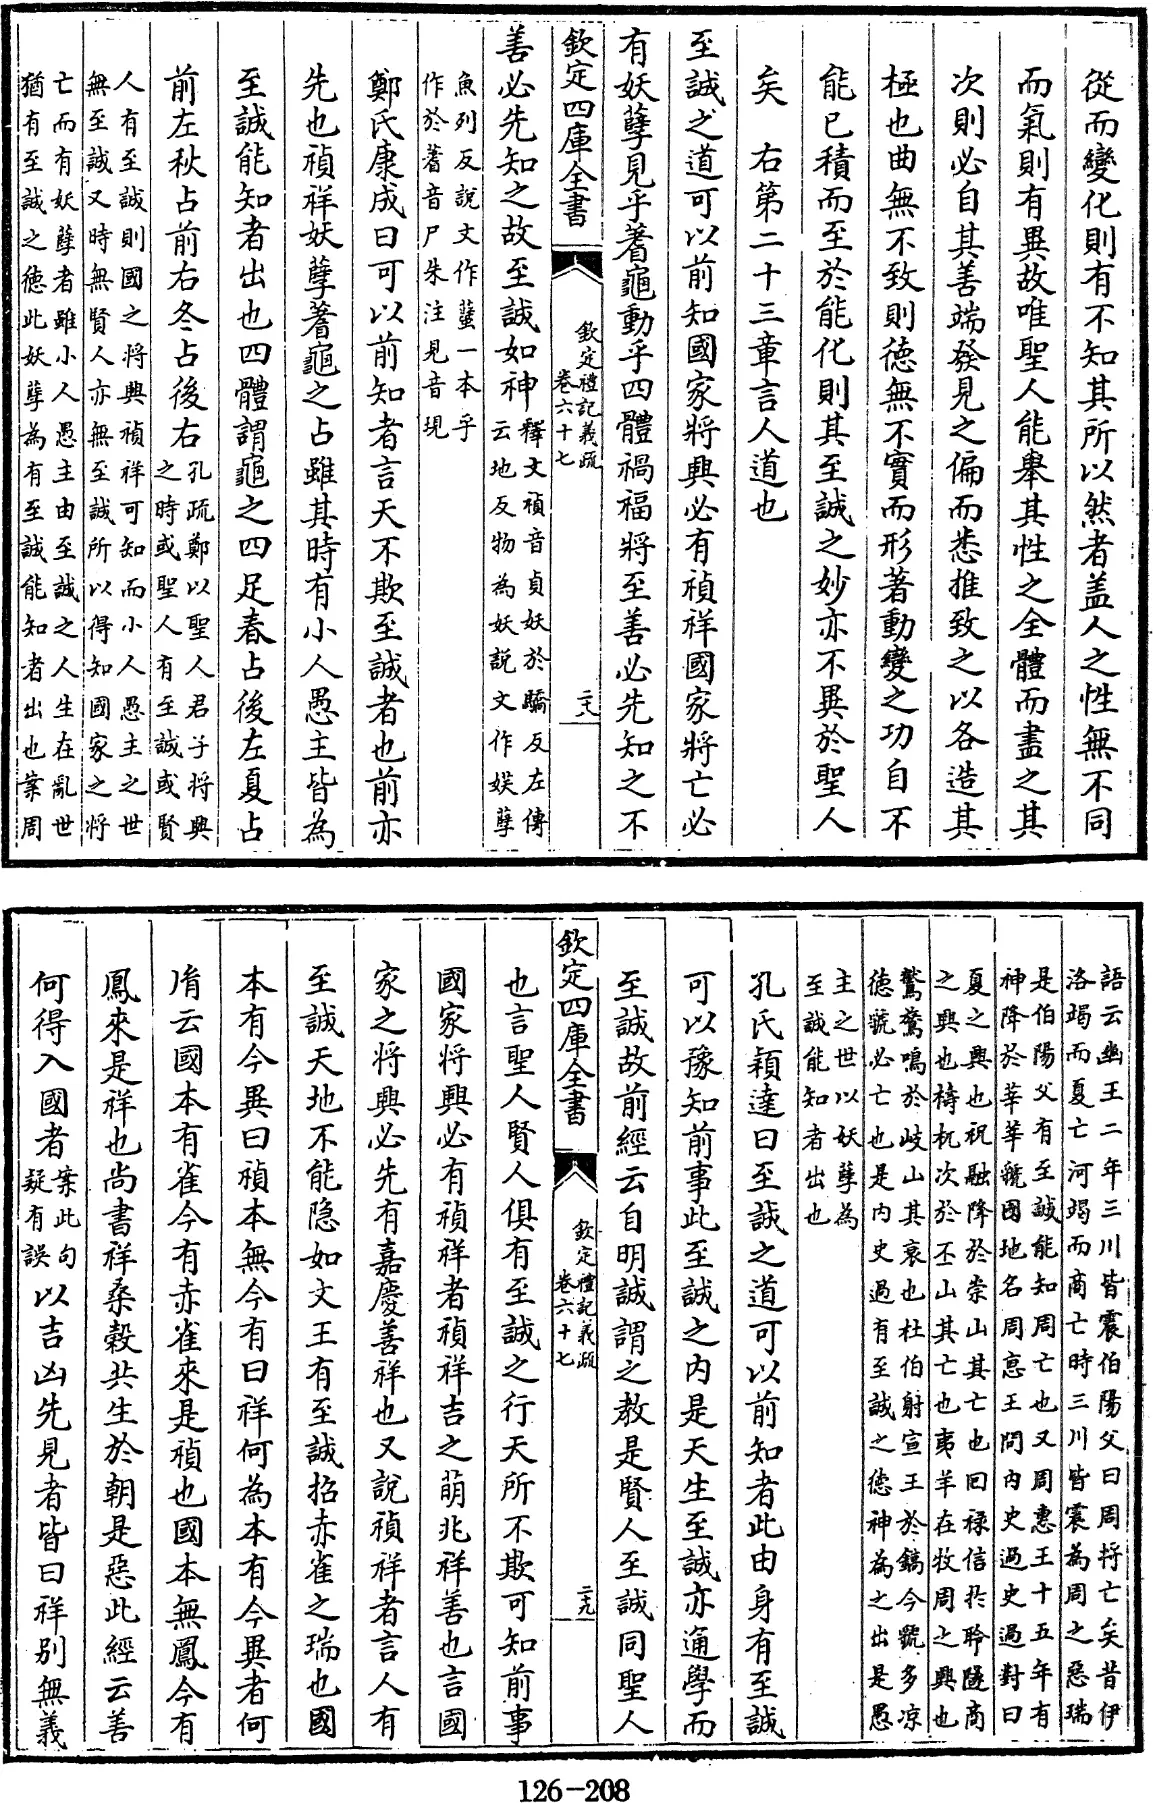 從而變化則有不知其所以然者盖人之性無不同
而氣則有異故唯聖人能舉其性之全體而盡之其
次則必自其善端發見之偏而悉推致之以各造其
極也曲無不致則徳無不實而形著動變之功自不
能已積而至於能化則其至誠之妙亦不異於聖人
矣　右第二十三章言人道也
至誠之道可以前知國家將興必有禎祥國家將亡必
有妖孽見乎蓍龜動乎四體禍福將至善必先知之不
欽定四庫全書
欽定禮記義疏
卷六十七
二十八
善必先知之故至誠如神釋文禎音貞妖於驕反左傳
云地反物為妖說文作娱孽
魚列反說文作蠥一本乎
作於蓍音尸朱注見音現
鄭氏康成曰可以前知者言天不欺至誠者也前亦
先也禎祥妖孽蓍龜之占雖其時有小人愚主皆為
至誠能知者出也四體謂龜之四足春占後左夏占
前左秋占前右冬占後右孔疏鄭以聖人君子將興
之時或聖人有至誠或賢
人有至誠則國之將興禎祥可知而小人愚主之世
無至誠又時無賢人亦無至誠所以得知國家之將
亡而有妖孽者雖小人愚主由至誠之人生在亂世
猶有至誠之徳此妖孽為有至誠能知者出也案周
語云幽王二年三川皆震伯陽父曰周将亡矣昔伊
洛竭而夏亡河竭而商亡時三川皆震為周之惡瑞
是伯陽父有至誠能知周亡也又周惠王十五年有
神降於莘莘虢國地名周惠王問内史過史過對曰
夏之興也祝融降於崇山其亡也回禄信於聆隧商
之興也檮杌次於丕山其亡也夷羊在牧周之興也
鸑鷟鳴於岐山其衰也杜伯射宣王於鎬今虢多凉
徳虢必亡也是内史過有至誠之徳神為之出是愚
主之世以妖孽為
至誠能知者出也
孔氏穎達曰至誠之道可以前知者此由身有至誠
可以豫知前事此至誠之内是天生至誠亦通學而
至誠故前經云自明誠謂之教是賢人至誠同聖人
欽定四庫全書
欽定禮記義疏
卷六十七
二十九
也言聖人賢人俱有至誠之行天所不欺可知前事
國家將興必有禎祥者禎祥吉之萌兆祥善也言國
家之將興必先有嘉慶善祥也又說禎祥者言人有
至誠天地不能隐如文王有至誠招赤雀之瑞也國
本有今異曰禎本無今有曰祥何為本有今異者何
胤云國本有雀今有赤雀來是禎也國本無鳳今有
鳳來是祥也尚書祥桑穀共生於朝是惡此經云善
何得入國者案此句
疑有誤以吉凶先見者皆曰祥别無義
126-208